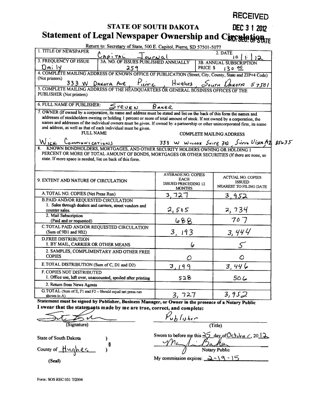 RECEIVED
DEC 31 2012
STATE OF SOUTH DAKOTA
Statement of Legal Newspaper Ownership and
Return to: Secretary of State, 500 E. Capitol, Pierre, SD 57501-5077
1. TITLE OF NEWSPAPER Capital Journal 2. DATE 10/1/12
3. FREQUENCY OF ISSUE Daily 3A. NO. OF ISSUES PUBLISHED ANNUALLY 259 3B. ANNUAL SUBSCRIPTION PRICE $
4. COMPLETE MAILING ADDRESS OF KNOWN OFFICE OF PUBLICATION (Street, City, County, State and ZIP+4 Code)
(Not printers) 333 W Dakota Ave Pierre Hughes South Dakota 57501
5. COMPLETE MAILING ADDRESS OF THE HEADQUARTERS OR GENERAL BUSINESS OFFICES OF THE
PUBLISHER (Not printers)
6. FULL NAME OF PUBLISHER: Steven Baker
7. OWNER (If owned by a corporation, its name and address must be stated and list on the back of this form the names and
addresses of stockholders owning or holding 1 percent or more of total amount of stock. If not owned by a corporation, the
names and addresses of the individual owners must be given. If owned by a partnership or other unincorporated firm, its name
and address, as well as that of each individual must be given.
FULL NAME COMPLETE MAILING ADDRESS
Wick Communications 333 W Wilcox Suite 302 Sierra Vista AZ 85635
8. KNOWN BONDHOLDERS, MORTGAGEES, AND OTHER SECURITY HOLDERS OWNING OR HOLDING 1
PERCENT OR MORE OF TOTAL AMOUNT OF BONDS, MORTGAGES OR OTHER SECURITIES (If there are none, so
state. If more space is needed, list on back of this form.
9. EXTENT AND NATURE OF CIRCULATION
AVERAGE NO. COPIES EACH ISSUED PRECEDING 12 MONTHS
ACTUAL NO. COPIES ISSUED NEAREST TO FILING DATE
A. TOTAL NO. COPIES (Net Press Run) 3,727 3,952
B. PAID AND/OR REQUESTED CIRCULATION
1. Sales through dealers and carriers, street vendors and
counter sales. 2,505 2,734
2. Mail Subscription
(Paid and or requested) 688 707
C. TOTAL PAID AND/OR REQUESTED CIRCULATION
(Sum of 9B1 and 9B2) 3,193 3,444
D. FREE DISTRIBUTION
1. BY MAIL, CARRIER OR OTHER MEANS 6 5
2. SAMPLES, COMPLIMENTARY AND OTHER FREE
COPIES 0 0
E. TOTAL DISTRIBUTION (Sum of C, D1 and D2) 3,199 3,446
F. COPIES NOT DISTRIBUTED
1. Office use, left over, unaccounted, spoiled after printing 528 506
2. Return from News Agents
G. TOTAL (Sum of E, F1 and F2 – Should equal net press run
shown in A) 3,727 3,952
Statement must be signed by Publisher, Business Manager, or Owner in the presence of a Notary Public
I swear that the statements made by me are true, correct, and complete:
Publisher
(Signature) (Title)
State of South Dakota ) Sworn to before me this 25 day of October, 2012
§
County of Hughes ) Notary Public
(Seal) My commission expires: 2-19-15
Form: SOS REC 051 7/2006